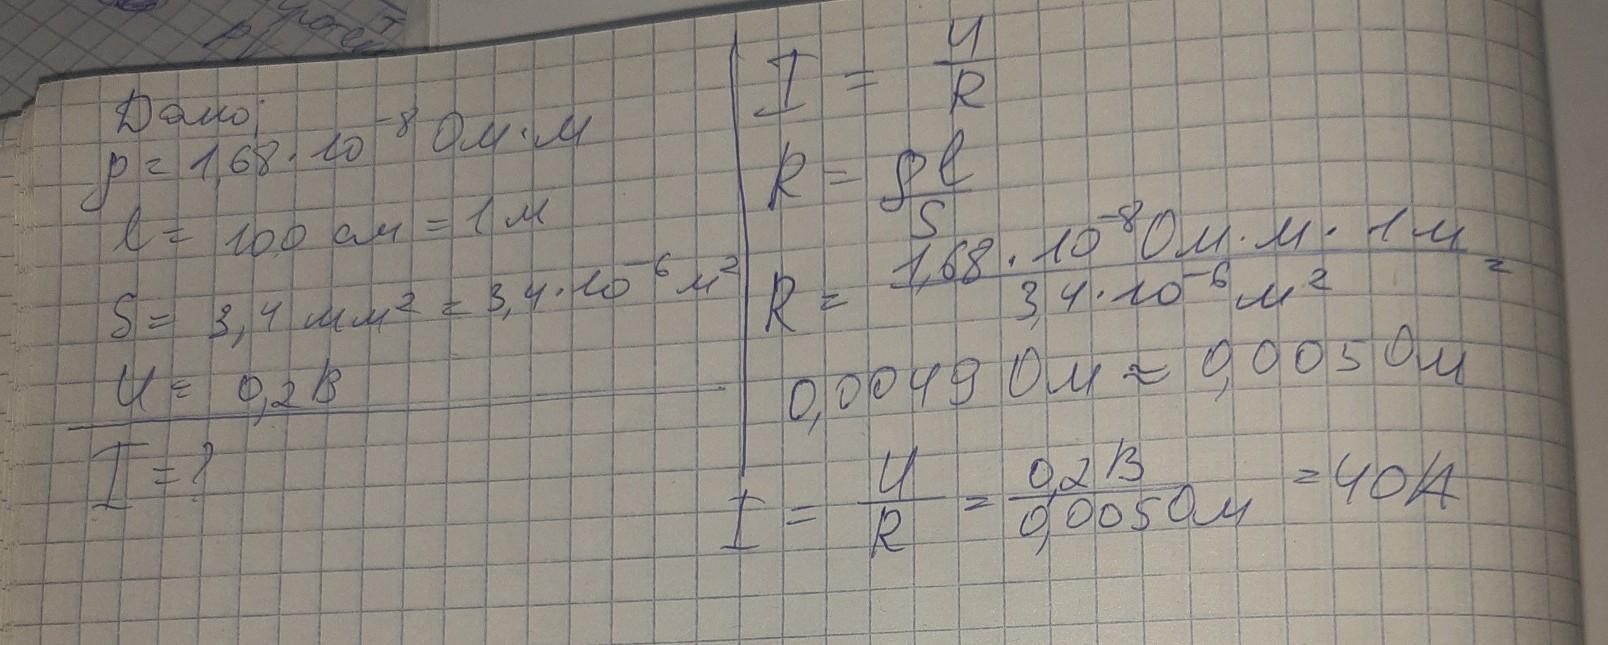 Дано:
ρ = 1,68 · 10⁻⁸ Ом · м
l = 100 см = 1 м
S = 3,4 мм² = 3,4 · 10⁻⁶ м²
U = 0,2 В
I = ?
I = U/R
R = ρl/S
R = 1,68 · 10⁻⁸ Ом · м · 1 м / 3,4 · 10⁻⁶ м² =
0,0049 Ом ≈ 0,005 Ом
I = U/R = 0,2 В / 0,005 Ом = 40 А